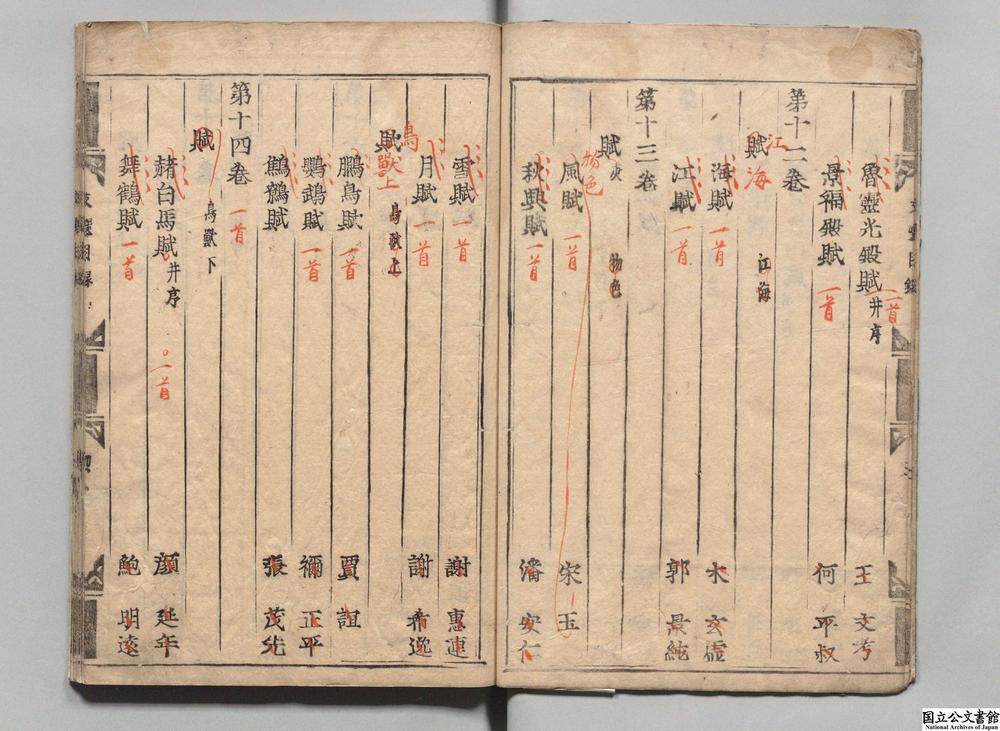 魯靈光殿賦并序 一首 王文考
景福殿賦 一首 何平叔
第十二卷
賦 江海 江海
海賦 一首 木玄虛
江賦 一首 郭景純
第十三卷
賦 物色 物色
風賦 一首 宋玉
秋興賦 一首 潘安仁
雪賦 一首 謝惠連
月賦 一首 謝希逸
賦 鳥獸上 鳥獸上
鵩鳥賦 一首 賈誼
鸚鵡賦 一首 禰正平
鷦鷯賦 張茂先
第十四卷 一首
賦 鳥獸下
赭白馬賦并序 一首 顏延年
舞鶴賦 一首 鮑明遠
国立公文書館
National Archives of Japan